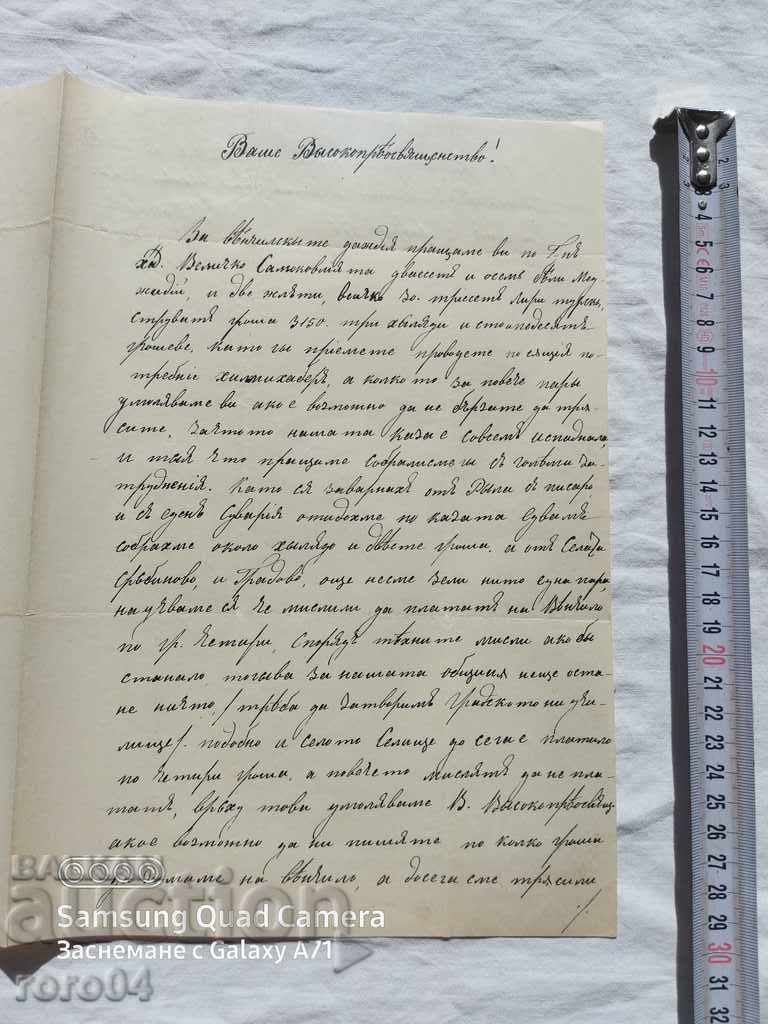 Ваше Высокопрѣосвященство!
За вѣнчилскыте даждия пращаме ви по Г-нъ
хд. Величко Самоковлията двасетъ и осемь бѣли Мед-
жидіи, и две жълты, всичко зо. тресетъ лири турскы,
струватъ гроша 3150. три хыляди и стоопедесятъ
грошеве, като гы пріемете проводете по сящия по-
требніе хилмихаберъ, а колкото за повече пары
умоляваме ви ако е возможно да не бързате да тря-
сите, защото нашата каза е совсемъ испаднала,
и тыя что пращаме собралисмегы съ големи за-
трудненія. Като ся заварнахъ отъ Рыла съ писаро
и съ еденъ Суварія отидохме по казата едвамъ
собрахме около хылядо и двѣсте гроша, а отъ Селата
Сръбиново, и Градово, още несме зели нито една пара,
научваме ся че мислили да плататъ на вѣнчило
по гр. четири, спорядъ техните мисли ако бы
станало, тогыва за нашата община неще оста-
не ничто, /трѣба да затворимъ градското ни учи-
лище/. подобно и селото Селище до сега е платило
по четири гроша, а повечето мислятъ да не пла-
татъ, врьху това умоляваме В. Высокопрѣосвящ.
ако е возможно да ни пишяте по колко гроша
да земаме на вѣнчило, а досега сме трясили
./.
BALKAN
auction
Samsung Quad Camera
Заснемане с Galaxy A71
roro04
2
3
3
4
5
6
7
8
9
10
11
12
13
14
15
16
17
18
19
20
21
22
23
24
25
26
27
28
29
30
31
32